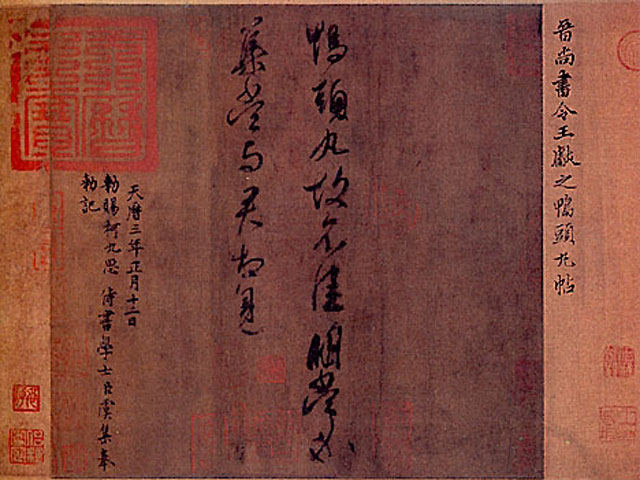 晉尚書令王獻之鴨頭丸帖
鴨頭丸故不佳明當必
集當與君相見
天曆三年正月十二日
勑賜柯九思 侍書學士臣虞集奉
勑記